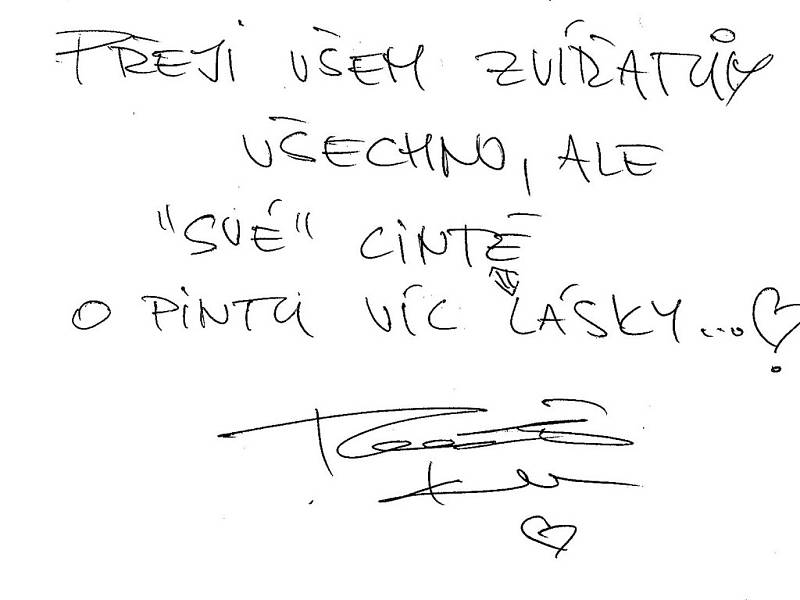 PŘEJI VŠEM ZVÍŘATŮM
VŠECHNO, ALE
"SVÉ" CINTĚ
O PINTU VÍC LÁSKY...